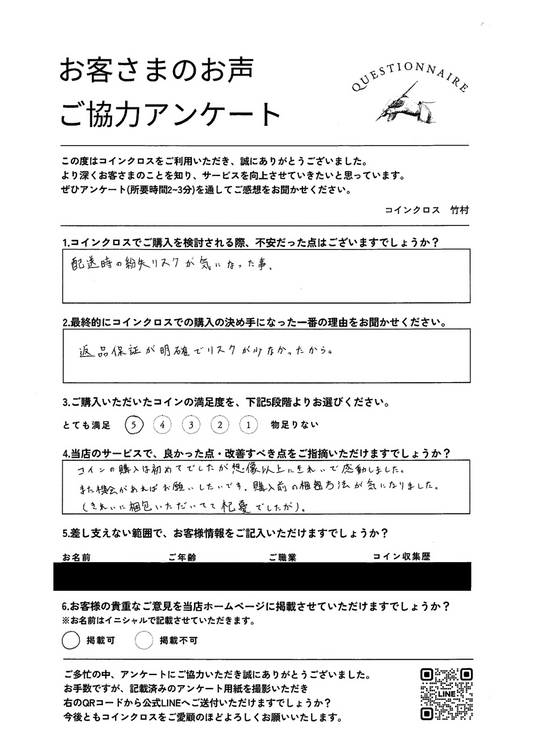 お客さまのお声
ご協力アンケート
QUESTIONNAIRE
この度はコインクロスをご利用いただき、誠にありがとうございました。
より深くお客さまのことを知り、サービスを向上させていきたいと思っています。
ぜひアンケート(所要時間2~3分)を通してご感想をお聞かせください。
コインクロス 竹村
1.コインクロスでご購入を検討される際、不安だった点はございますでしょうか？
配送時の紛失リスクが気になった事。
2.最終的にコインクロスでの購入の決め手になった一番の理由をお聞かせください。
返品保証が明確でリスクが少なかったから。
3.ご購入いただいたコインの満足度を、下記5段階よりお選びください。
とても満足 5 4 3 2 1 物足りない
4.当店のサービスで、良かった点・改善すべき点をご指摘いただけますでしょうか？
コインの購入は初めてでしたが想像以上にきれいで感動しました。
また機会があればお願いしたいです。購入前の梱包方法が気になりました。
(きれいに梱包いただいてて杞憂でしたが)。
5.差し支えない範囲で、お客様情報をご記入いただけますでしょうか？
お名前 ご年齢 ご職業 コイン収集歴
6.お客様の貴重なご意見を当店ホームページに掲載させていただけますでしょうか？
※お名前はイニシャルで記載させていただきます。
掲載可 掲載不可
ご多忙の中、アンケートにご協力いただき誠にありがとうございました。
お手数ですが、記載済みのアンケート用紙を撮影いただき
右のQRコードから公式LINEへご送付いただけますでしょうか？
今後ともコインクロスをご愛顧のほどよろしくお願いいたします。
LINE